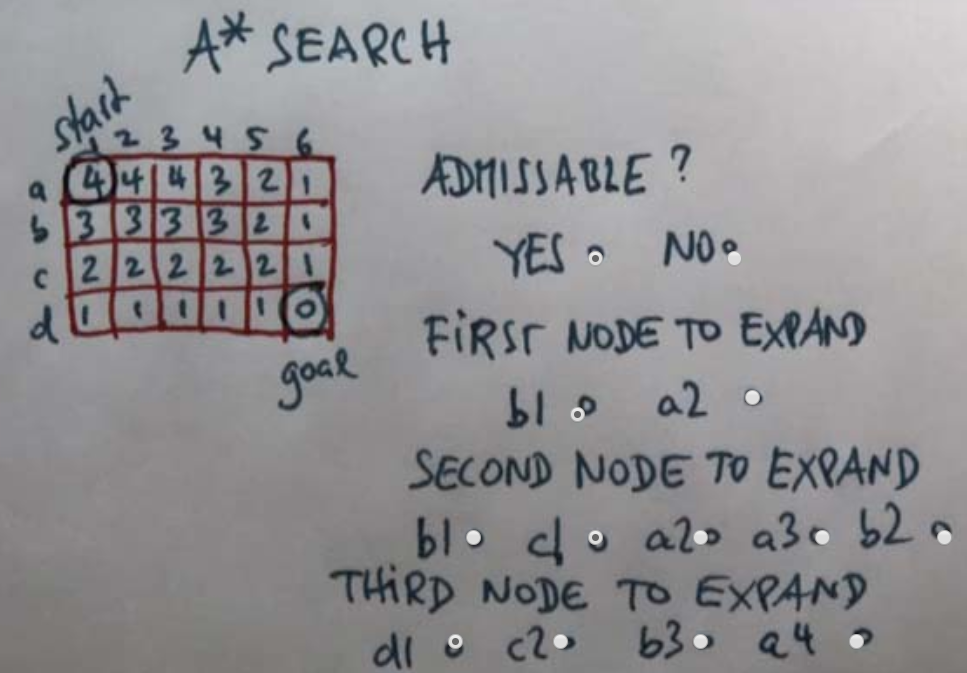 A* SEARCH
start
1 2 3 4 5 6
a 4 4 4 3 2 1
b 3 3 3 3 2 1
c 2 2 2 2 2 1
d 1 1 1 1 1 0
goal
ADMISSABLE ?
YES NO
FIRST NODE TO EXPAND
b1 a2
SECOND NODE TO EXPAND
b1 c1 a2 a3 b2
THIRD NODE TO EXPAND
d1 c2 b3 a4